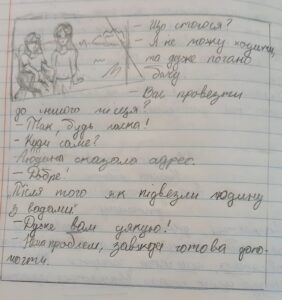 - Що сталося?
- Я не можу ходити,
та дуже погано
бачу.
- Вас провезти
до іншого місця?
- Так, будь ласка!
- Куди саме?
Людина сказала адрес.
- Добре!
"Після того як підвезли людину
з вадами"
- Дуже вам дякую!
- Нема проблем, завжди готова допо-
могти.